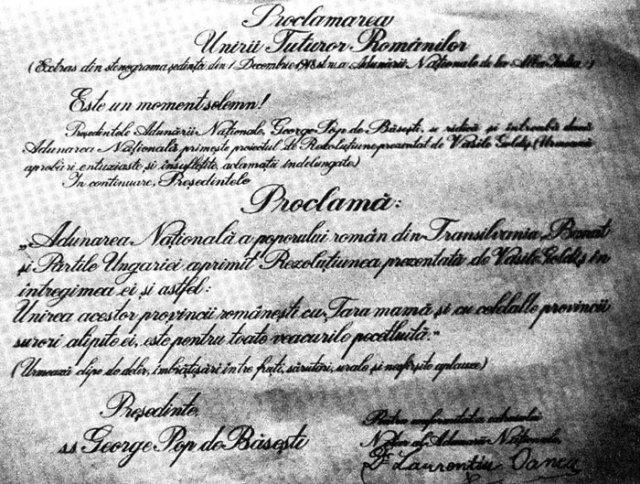 Proclamarea
Unirii Tuturor Românilor
(Extras din stenograma ședinței din 1 Decembrie 1918 st. n. a Adunării Naționale de la Alba Iulia)
Este un moment solemn!
Președintele Adunării Naționale, George Pop de Băsești, se ridică și întreabă dacă
Adunarea Națională primește proiectul de Rezoluțiune prezentat de Vasile Goldiș (Urmează
aprobări entuziaste și însuflețite, aclamații îndelungate)
In continuare, Președintele
Proclamă:
„Adunarea Națională a poporului român din Transilvania, Banat
și Părțile Ungariei a primit Rezoluțiunea prezentată de Vasile Goldiș în
întregimea ei și astfel:
Unirea acestor provincii românești cu Țara mamă și cu celelalte provincii
surori alipite ei, este pentru toate veacurile pecetluită."
(Urmează clipe de delir, îmbrățișări între frați, sărutări, urale și nesfîrșite aplauze)
Președinte,
ss George Pop de Băsești
Pentru conformitatea
Notar al Adunării Naționale
Dr Laurentiu Oanea